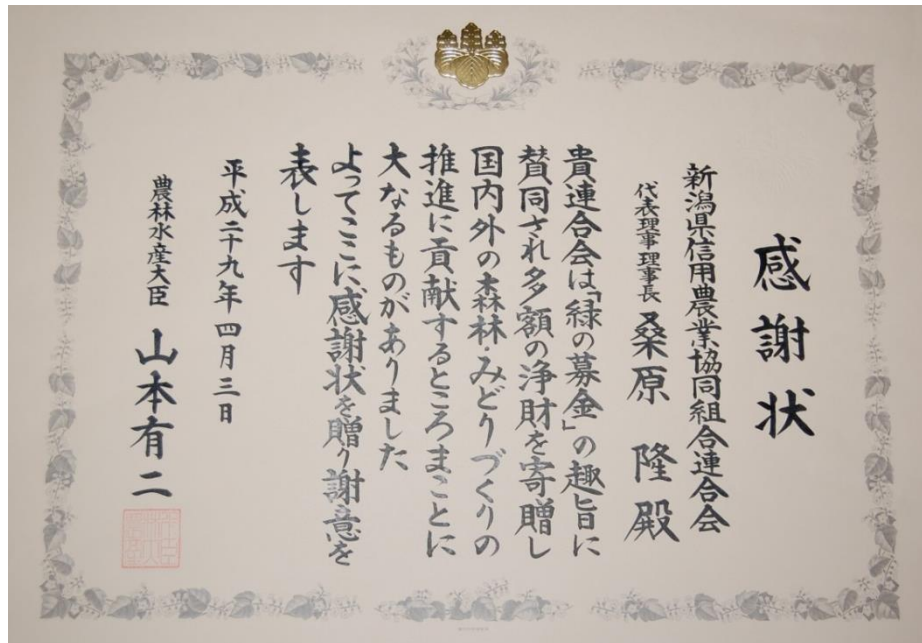 感謝状
新潟県信用農業協同組合連合会
代表理事理事長 桑原 隆 殿
貴連合会は「緑の募金」の趣旨に
賛同され多額の浄財を寄贈し
国内外の森林・みどりづくりの
推進に貢献するところまことに
大なるものがありました
よってここに感謝状を贈り謝意を
表します
平成二十九年四月三日
農林水産大臣 山本有二